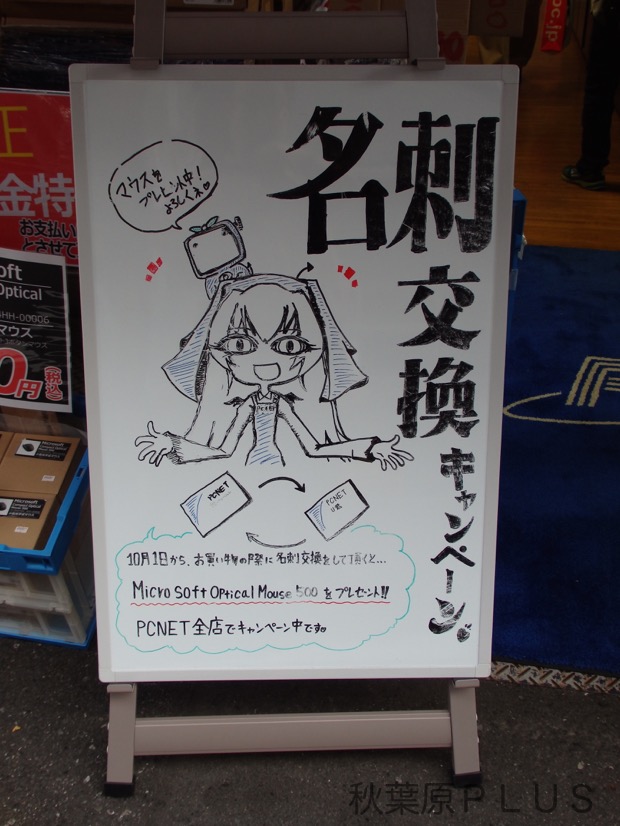 名刺交換キャンペーン。
マウスを
プレゼント中!
よろしくネ
PCNET
PCNET
10月1日から、お買い物の際に名刺交換をして頂くと…
MicroSoft Optical Mouse 500 をプレゼント!!
PCNET全店でキャンペーン中です。
正
金特
お支払い
とさせて
oft
Optical
HH-00006
マウス
0円
(税込)
Microsoft
oc.jp
秋葉原PLUS